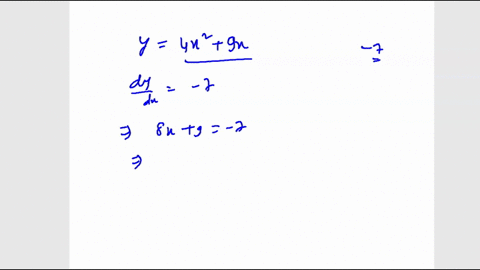 y = 4x² + 9x
-7
dy/dx = -7
⇒ 8x + 9 = -7
⇒